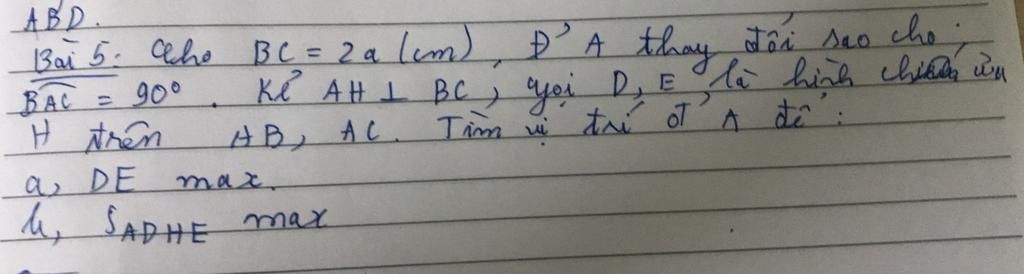 ABD.
Bài 5: Cho BC = 2a (cm), Đ' A thay đổi sao cho
BAC = 90°. Kẻ AH ⊥ BC, gọi D, E là hình chiếu của
H trên AB, AC. Tìm vị trí đ' A để:
a, DE max.
b, SADHE max